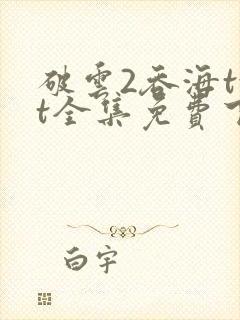 破雲2吞海t
t全集免費
白宇